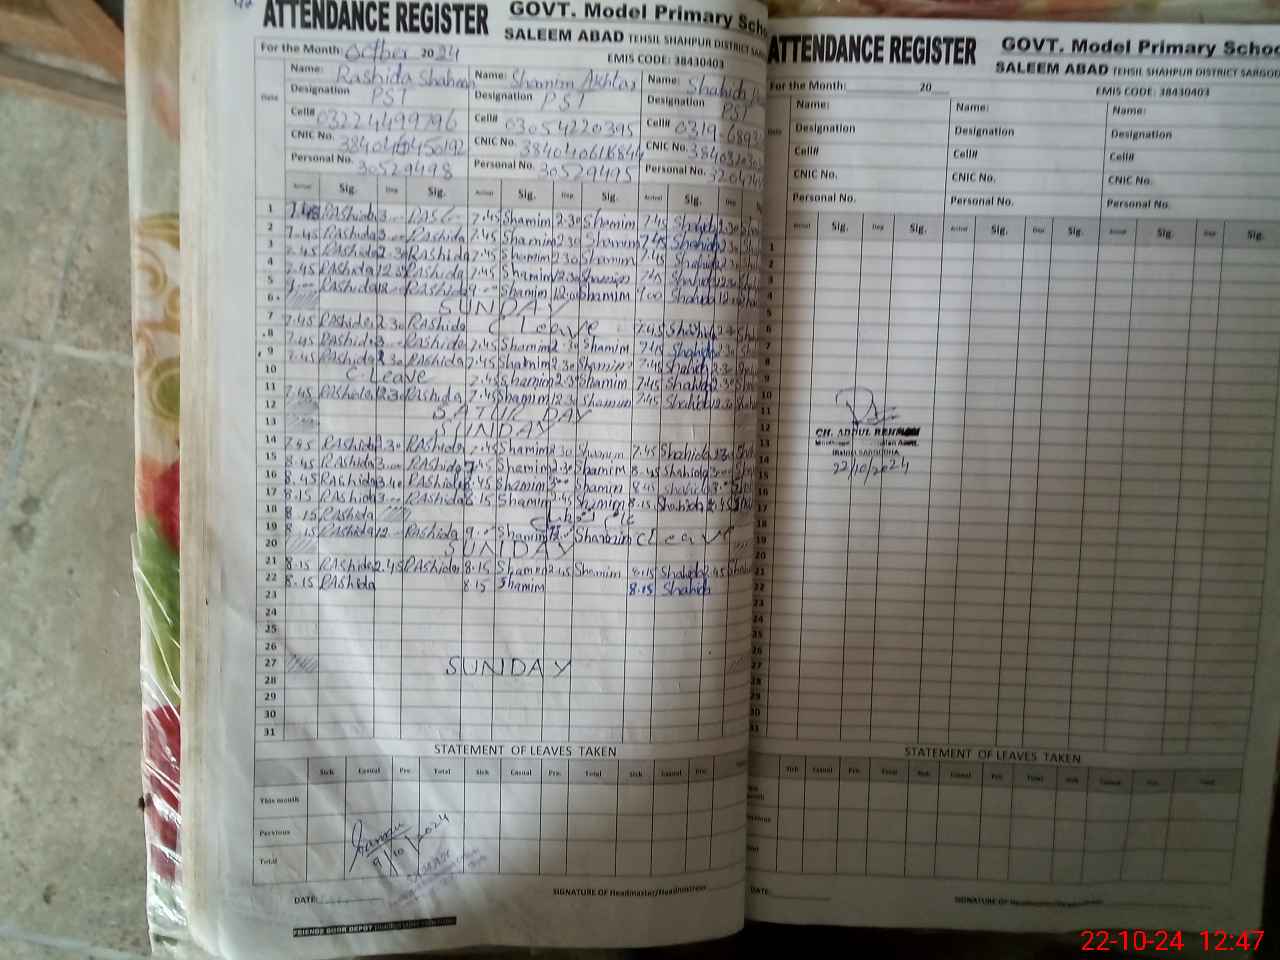 ATTENDANCE REGISTER
GOVT. Model Primary Scho
SALEEM ABAD TEHSIL SHAHPUR DISTRICT SARG
For the Month: October 2024
EMIS CODE: 38430403
Name: Rashida Shaheen Name: Shamim Akhtar Name: Shahida
Designation PST Designation PST Designation PST
Cell# 03224499796 Cell# 03054220395 Cell# 0319-689
CNIC No. CNIC No. CNIC No.
Personal No. 30529498 Personal No. 30529495 Personal No.
Date Arrival Sig. Dep Sig. Arrival Sig. Dep Sig. Arrival Sig. Dep
1 7.45 Rashida 3 7.45 Shamim 2.30 Shamim 7.45 Shahida 2.30
2 7.45 Rashida 3 Rashida 7.45 Shamim 2.30 Shamim 7.45 Shahida 2.30
3 7.45 Rashida 2.30 Rashida 7.45 Shamim 2.30 Shamim 7.45 Shahida 2.30
4 7.45 Rashida 12.30 Rashida 7.45 Shamim 12.30 Shamim 7.45 Shahida 12.30
5 9.00 Rashida 12.00 Rashida 9.00 Shamim 12.00 Shamim 9.00 Shahida 12.00
6 SUNDAY
7 7.45 Rashida 2.30 Rashida C Leave 7.45 Shahida
8 7.45 Rashida 3 Rashida 7.45 Shamim 2.30 Shamim 7.45 Shahida 2.30
9 7.45 Rashida 2.30 Rashida 7.45 Shamim 2.30 Shamim 7.45 Shahida 2.30
10 C-Leave 7.45 Shamim 2.30 Shamim 7.45 Shahida 2.30
11 7.45 Rashida 12.30 Rashida 7.45 Shamim 12.30 Shamim 7.45 Shahida 12.30
12 SATURDAY
13 SUNDAY
14 7.45 Rashida 2.30 Rashida 7.45 Shamim 2.30 Shamim 7.45 Shahida 2.30
15 8.45 Rashida 3.00 Rashida 7.45 Shamim 2.30 Shamim 8.45 Shahida 3.00
16 8.45 Rashida Rashida 8.45 Shamim 3.00 Shamim 8.45 Shahida 3.00
17 8.15 Rashida 3 Rashida 8.15 Shamim 2.45 Shamim 8.15 Shahida 2.45
18 8.15 Rashida
19 8.15 Rashida 12 Rashida 9.00 Shamim 12 Shamim C Leave
20 SUNDAY
21 8.15 Rashida 2.45 Rashida 8.15 Shamim 2.45 Shamim 8.15 Shahida 2.45
22 8.15 Rashida 8.15 Shamim 8.15 Shahida
23
24
25
26
27 SUNDAY
28
29
30
31
STATEMENT OF LEAVES TAKEN
Sick Casual Prv. Total Sick Casual Prv. Total Sick Casual Prv.
This month
Pervious
Total
9/10/2024
DATE:
SIGNATURE OF Headmaster/Headmistress
FRIENDS BOOK DEPOT
ATTENDANCE REGISTER
GOVT. Model Primary Schoo
SALEEM ABAD TEHSIL SHAHPUR DISTRICT SARGOD
For the Month: 20
EMIS CODE: 38430403
Name: Name: Name:
Designation Designation Designation
Cell# Cell# Cell#
CNIC No. CNIC No. CNIC No.
Personal No. Personal No. Personal No.
Arrival Sig. Dep Sig. Arrival Sig. Dep Sig. Arrival Sig. Dep Sig.
1
2
3
4
5
6
7
8
9
10
11
12
13
14
15
16
17
18
19
20
21
22
23
24
25
26
27
28
29
30
31
CH. ABDUL REHMAN
22/10/2024
STATEMENT OF LEAVES TAKEN
Sick Casual Prv. Total Sick Casual Prv. Total Sick Casual Prv. Total
DATE:
SIGNATURE OF Headmaster/Headmistress
22-10-24 12:47